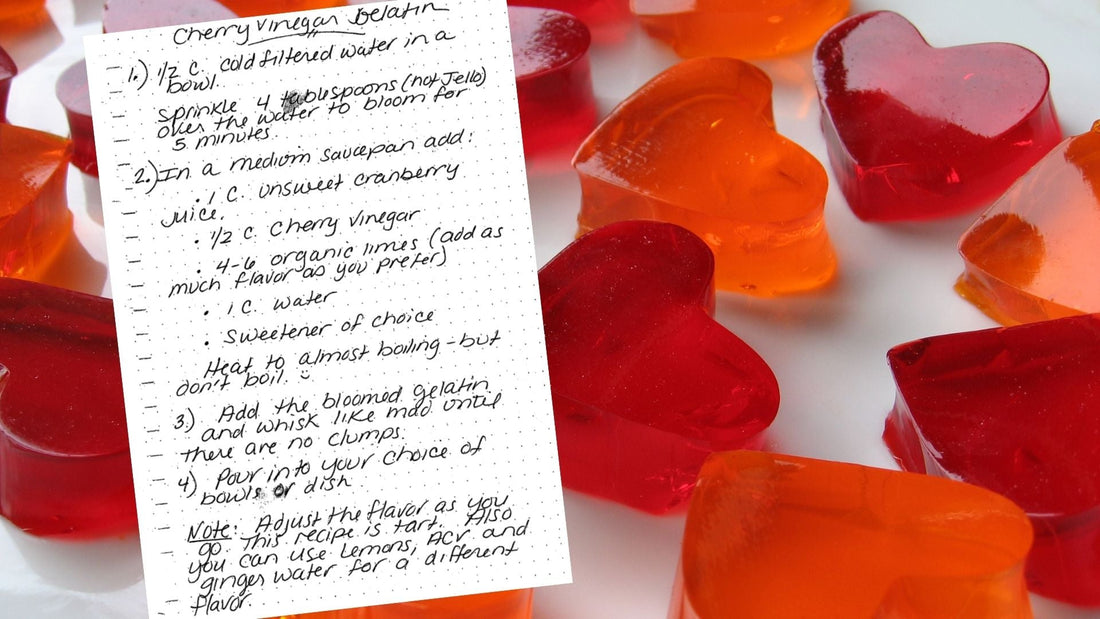 Cherry Vinegar Gelatin
1.) 1/2 c. cold filtered water in a
bowl.
sprinkle 4 tablespoons (not Jello)
over the water to bloom for
5 minutes
2.) In a medium saucepan add:
• 1 c. unsweet cranberry
juice.
• 1/2 c. cherry vinegar
• 4-6 organic limes (add as
much flavor as you prefer)
• 1 c. water
• sweetener of choice
Heat to almost boiling - but
don't boil. :)
3.) Add the bloomed gelatin
and whisk like mad until
there are no clumps.
4) Pour into your choice of
bowls or dish
Note: Adjust the flavor as you
go. This recipe is tart. Also
you can use lemons, ACV and
ginger water for a different
flavor.